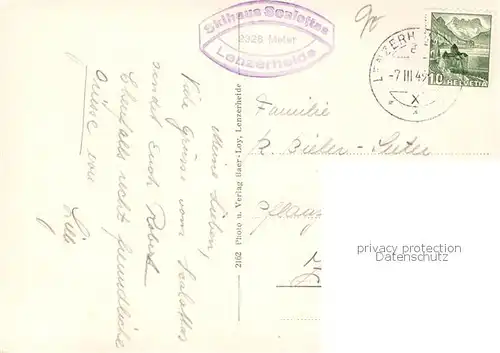 Skihaus Scalottas
2328 Meter
Lenzerheide
LENZERH
-7 III 49
X
10 HELVETIA
Meine Lieben,
Viele Grüsse vom Scalottas
sendet Euch Robert
Ebenfalls recht freundliche
Grüsse von
2162 Photo u. Verlag Baer-Loy, Lenzerheide
Familie
K. Bieler-Suter
privacy protection
Datenschutz